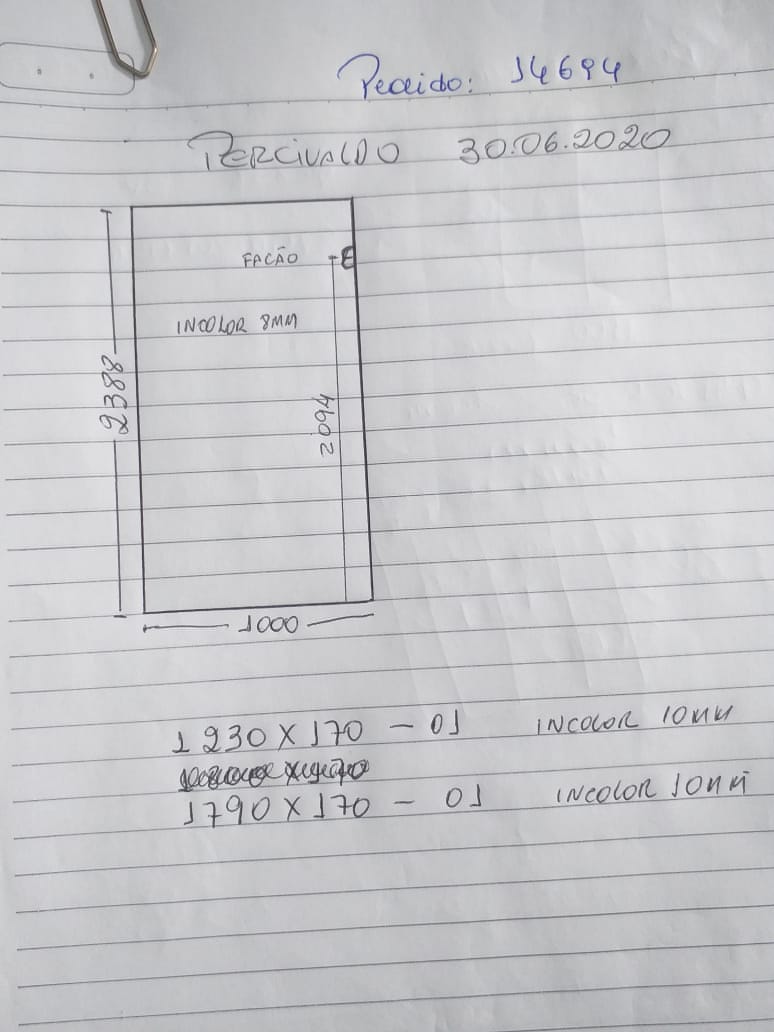 Pedido: 14694
PERCIVALDO 30.06.2020
FACÃO
INCOLOR 8MM
2388
2094
1000
1230 X 170 - 01 INCOLOR 10MM
1790 X 170 - 01 INCOLOR 10MM